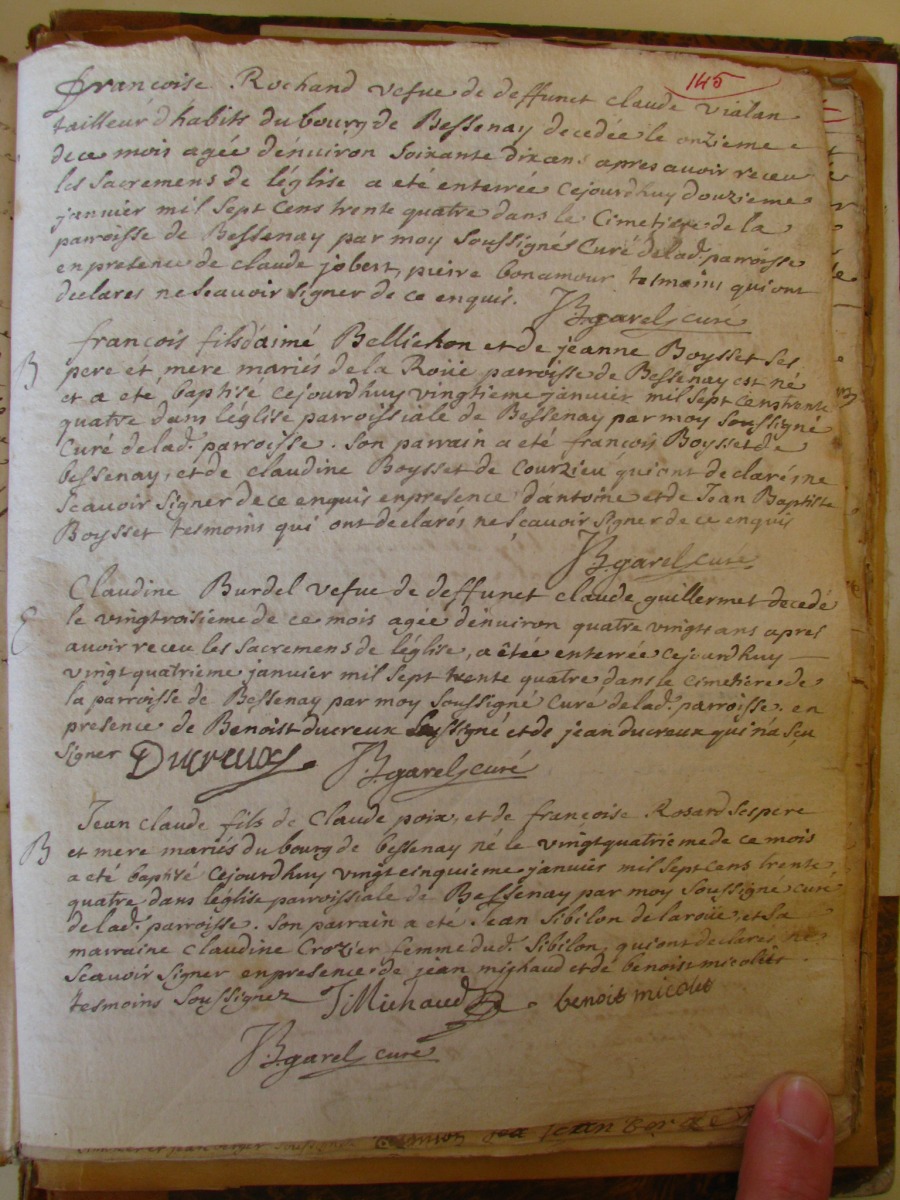 145
françoise Rochand vefue de deffunct claude vialan
tailleur d'habits du bourg de Bessenay decedée le onzieme
de ce mois agée d'enuiron soixante dix ans apres auoir receu
les sacremens de l'église a eté enterrée cejourdhuy douzieme
januier mil sept cens trente quatre dans le Cimetiere de la
parroisse de Bessenay par moy soussignés Curé de lad. parroisse
en presence de claude jobert, pierre bonamour tesmoins qui ont
declares ne scauoir signer de ce enquis.
JB garel curé
françois fils d'aimé Bellichon et de jeanne Boysset ses
B
pere et mere mariés de la Roüe parroisse de Bessenay est né
et a eté baptisé cejourdhuy vingtieme januier mil sept cens trente
quatre dans l'église parroissiale de Bessenay par moy soussigné
Curé de lad. parroisse. son parrain a été françois Boysset de
bessenay, et de claudine Boysset de Courzieu qui ont declarés ne
scauoir signer de ce enquis en presence d'antoine et de Jean Baptiste
Boysset tesmoins qui ont declarés ne scauoir signer de ce enquis
JB garel curé
Claudine Burdel vefue de deffunct claude guillermet decedé
E
le vingtroisieme de ce mois agée d'enuiron quatre vingts ans apres
auoir receu les sacremens de l'église, a étée enterrée cejourdhuy
vingt quatrieme januier mil sept trente quatre dans le cimetiere de
la parroisse de Bessenay par moy soussigné curé de lad. parroisse. en
presence de Benoist ducreux soussigné et de jean ducreux qui n'a sçu
signer Ducreux JB garel curé
Jean claude fils de Claude poix, et de françoise Rosard ses pere
B
et mere mariés du bourg de bessenay né le vingtquatrieme de ce mois
a eté baptisé cejourdhuy vingtcinquieme januier mil sept cens trente
quatre dans l'église parroissiale de Bessenay par moy soussigné curé
de lad. parroisse. son parrain a eté Jean Sibilon de laroüe, et sa
marraine claudine Crozier femme dud. Sibilon, qui ont declares ne
scauoir signer en presence de jean michaud et de benoist micolet
tesmoins soussignez JMichaud benoit micolet
JB garel curé